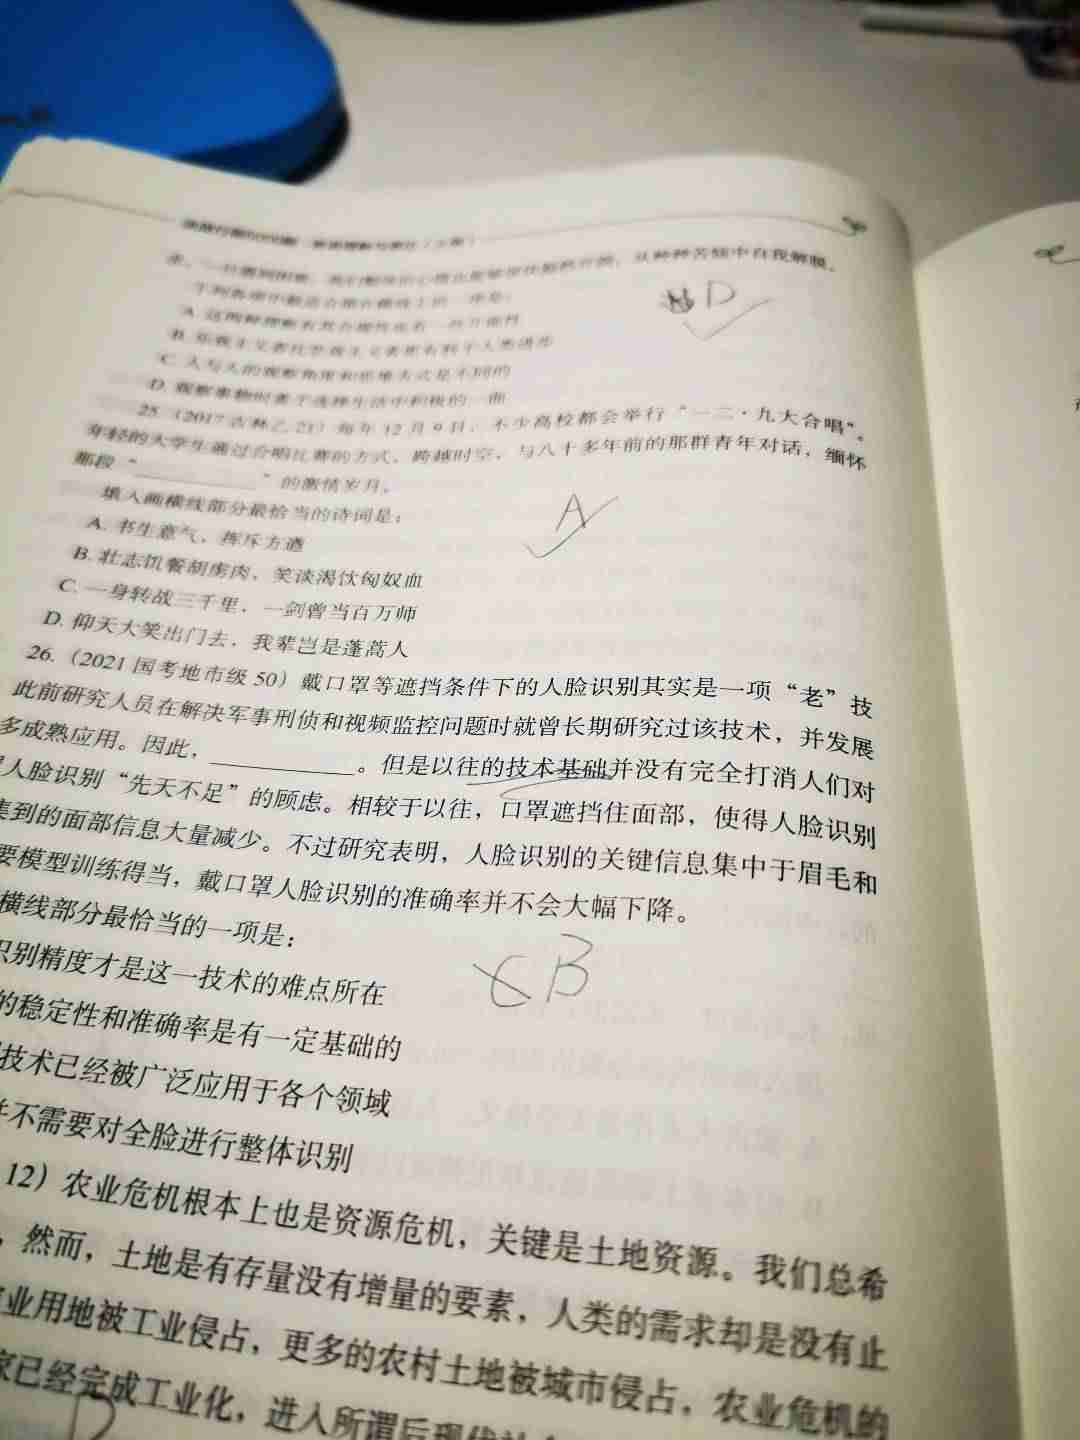 从种种苦恼中自我解脱。
D
C. 人与人的观察角度和思维方式是不同的
D. 观察事物时要于选择生活中积极的一面
25.（2017吉林乙21）每年12月9日，不少高校都会举行“一二·九大合唱”。
年轻的大学生通过合唱比赛的方式，跨越时空，与八十多年前的那群青年对话，缅怀
那段“____________”的激情岁月。
填入画横线部分最恰当的诗词是：
A
A. 书生意气，挥斥方遒
B. 壮志饥餐胡虏肉，笑谈渴饮匈奴血
C. 一身转战三千里，一剑曾当百万师
D. 仰天大笑出门去，我辈岂是蓬蒿人
26.（2021国考地市级50）戴口罩等遮挡条件下的人脸识别其实是一项“老”技
此前研究人员在解决军事刑侦和视频监控问题时就曾长期研究过该技术，并发展
多成熟应用。因此，____________。但是以往的技术基础并没有完全打消人们对
人脸识别“先天不足”的顾虑。相较于以往，口罩遮挡住面部，使得人脸识别
集到的面部信息大量减少。不过研究表明，人脸识别的关键信息集中于眉毛和
要模型训练得当，戴口罩人脸识别的准确率并不会大幅下降。
横线部分最恰当的一项是：
B
识别精度才是这一技术的难点所在
的稳定性和准确率是有一定基础的
技术已经被广泛应用于各个领域
并不需要对全脸进行整体识别
12）农业危机根本上也是资源危机，关键是土地资源。我们总希
，然而，土地是有存量没有增量的要素，人类的需求却是没有止
业用地被工业侵占，更多的农村土地被城市侵占，农业危机的
家已经完成工业化，进入所谓后现代社会
D